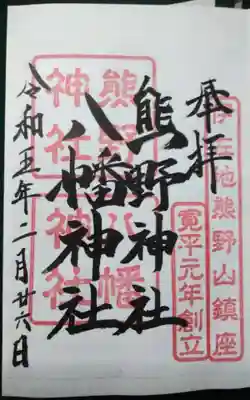 奉拝
伊在地熊野山鎮座
寛平元年創立
熊野神社
八幡神社
熊野八幡
神社神社
令和五年二月廿六日